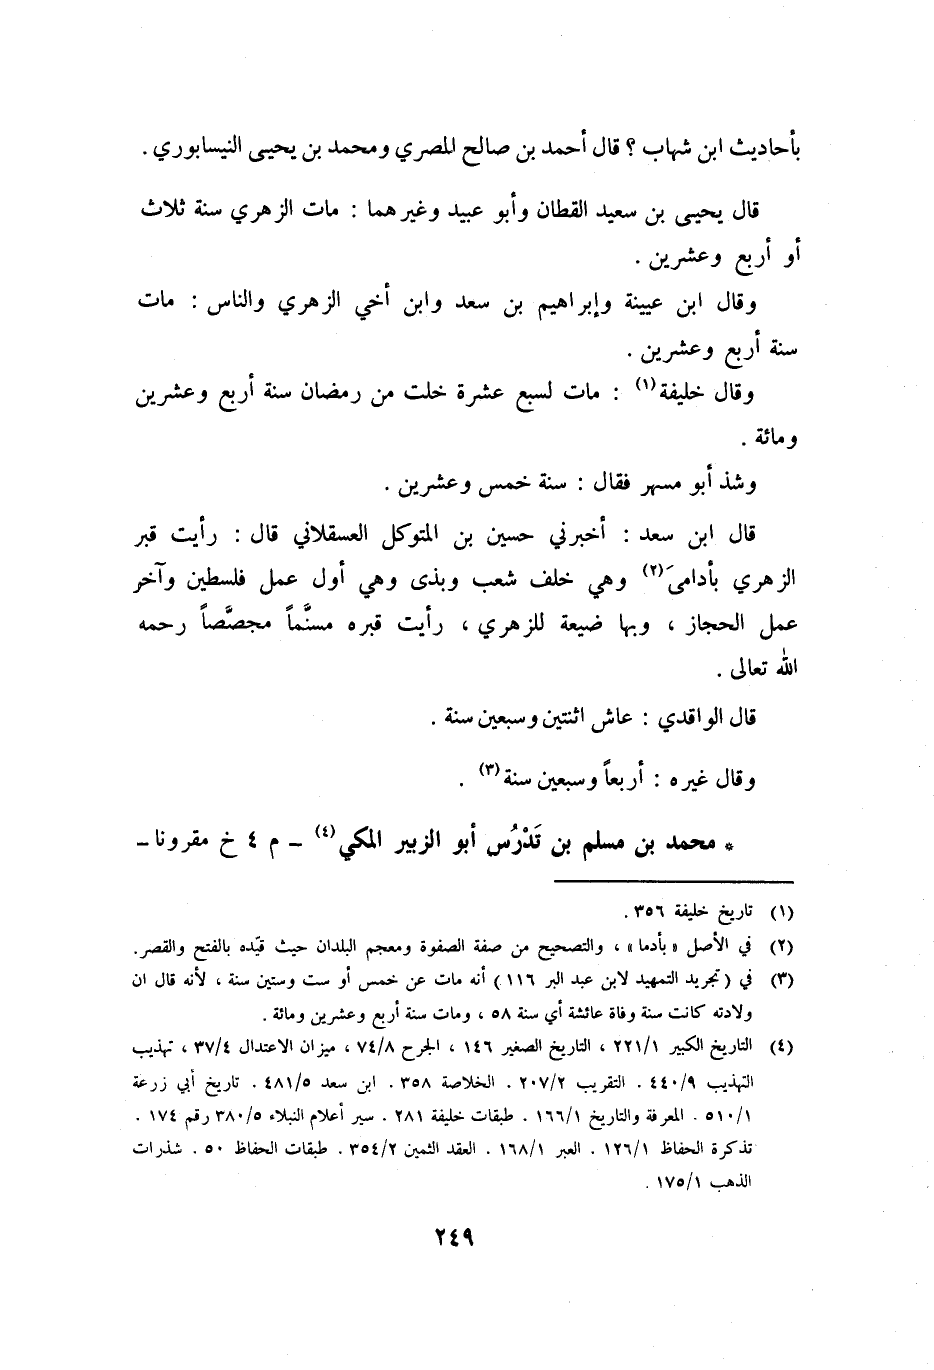 بأحاديث ابن شهاب ؟ قال أحمد بن صالح المصري ومحمد بن يحيى النيسابوري .
قال يحيى بن سعيد القطان وأبو عبيد وغيرهما : مات الزهري سنة ثلاث
أو أربع وعشرين .
وقال ابن عيينة وإبراهيم بن سعد وابن أخي الزهري والناس : مات
سنة أربع وعشرين .
وقال خليفة(١) : مات لسبع عشرة خلت من رمضان سنة أربع وعشرين
ومائة .
وشذ أبو مسهر فقال : سنة خمس وعشرين .
قال ابن سعد : أخبرني حسين بن المتوكل العسقلاني قال : رأيت قبر
الزهري بأدامىَ(٢) وهي خلف شعب وبذى وهي أول عمل فلسطين وآخر
عمل الحجاز ، وبها ضيعة للزهري ، رأيت قبره مسنَّماً مجصَّصاً رحمه
الله تعالى .
قال الواقدي : عاش اثنتين وسبعين سنة .
وقال غيره : أربعاً وسبعين سنة(٣) .
* محمد بن مسلم بن تَدْرُس أبو الزبير المكي(٤) ـ م ٤ خ مقرونا ـ
(١) تاريخ خليفة ٣٥٦ .
(٢) في الأصل « بأدما » ، والتصحيح من صفة الصفوة ومعجم البلدان حيث قيّده بالفتح والقصر.
(٣) في ( تجريد التمهيد لابن عبد البر ١١٦ ) أنه مات عن خمس أو ست وستين سنة ، لأنه قال ان
ولادته كانت سنة وفاة عائشة أي سنة ٥٨ ، ومات سنة أربع وعشرين ومائة .
(٤) التاريخ الكبير ٢٢١/١ ، التاريخ الصغير ١٤٦ ، الجرح ٧٤/٨ ، ميزان الاعتدال ٣٧/٤ ، تهذيب
التهذيب ٤٤٠/٩ . التقريب ٢٠٧/٢ . الخلاصة ٣٥٨ . ابن سعد ٤٨١/٥ . تاريخ أبي زرعة
٥١٠/١ . المعرفة والتاريخ ١٦٦/١ . طبقات خليفة ٢٨١ . سير أعلام النبلاء ٣٨٠/٥ رقم ١٧٤ .
تذكرة الحفاظ ١٢٦/١ . العبر ١٦٨/١ . العقد الثمين ٣٥٤/٢ . طبقات الحفاظ ٥٠ . شذرات
الذهب ١٧٥/١ .
٢٤٩